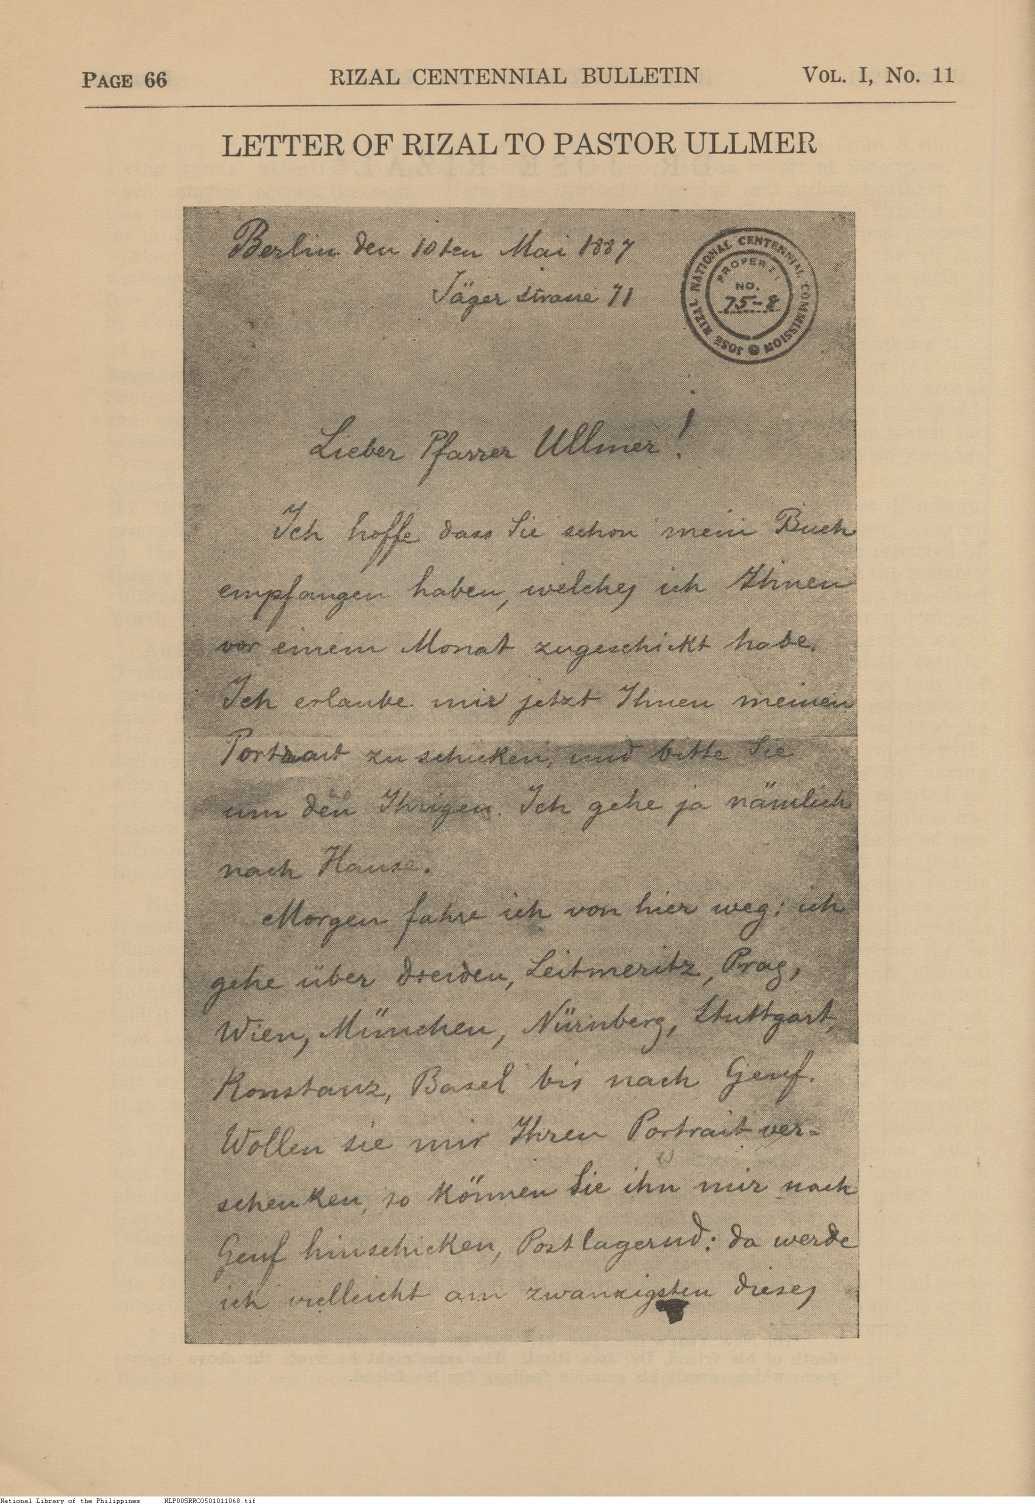 PAGE 66
RIZAL CENTENNIAL BULLETIN
VOL. I, No. 11
LETTER OF RIZAL TO PASTOR ULLMER
Berlin den 10ten Mai 1887
Jäger strasse 71
JOSE RIZAL NATIONAL CENTENNIAL COMMISSION
PROPERTY
NO.
75-8
Lieber Pfarrer Ullmer!
Ich hoffe dass Sie schon mein Buch
empfangen haben, welches ich Ihnen
vor einem Monat zugeschickt habe.
Ich erlaube mir jetzt Ihnen meinen
Portrait zu schicken, und bitte Sie
um den Ihrigen. Ich gehe ja nämlich
nach Hause.
Morgen fahre ich von hier weg; ich
gehe über Dresden, Leitmeritz, Prag,
Wien, München, Nürnberg, Stuttgart,
Konstanz, Basel bis nach Genf.
Wollen sie mir Ihren Portrait ver-
schenken, so können Sie ihn mir nach
Genf hinschicken, Postlagernd; da werde
ich vielleicht am zwanzigsten dieses
National Library of the Philippines NLP00SRRC0501011068.tif